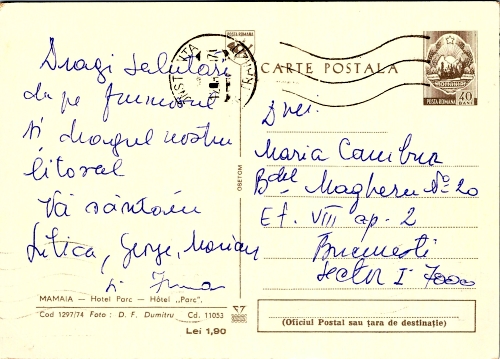 POSTA ROMANA
CARTE POSTALA
POSTA ROMANA 40 BANI
Dragi salutări
de pe frumosul
și dragul nostru
litoral
Vă sărutăm
George, Marian
și
Dnei.
Maria Cambur
Bdel Magheru No 20
Et. VIII ap. 2
București
Sector I 7000
MAMAIA — Hotel Parc — Hôtel „Parc".
Cod 1297/74 Foto : D. F. Dumitru Cd. 11053
Lei 1,90
(Oficiul Postal sau țara de destinație)